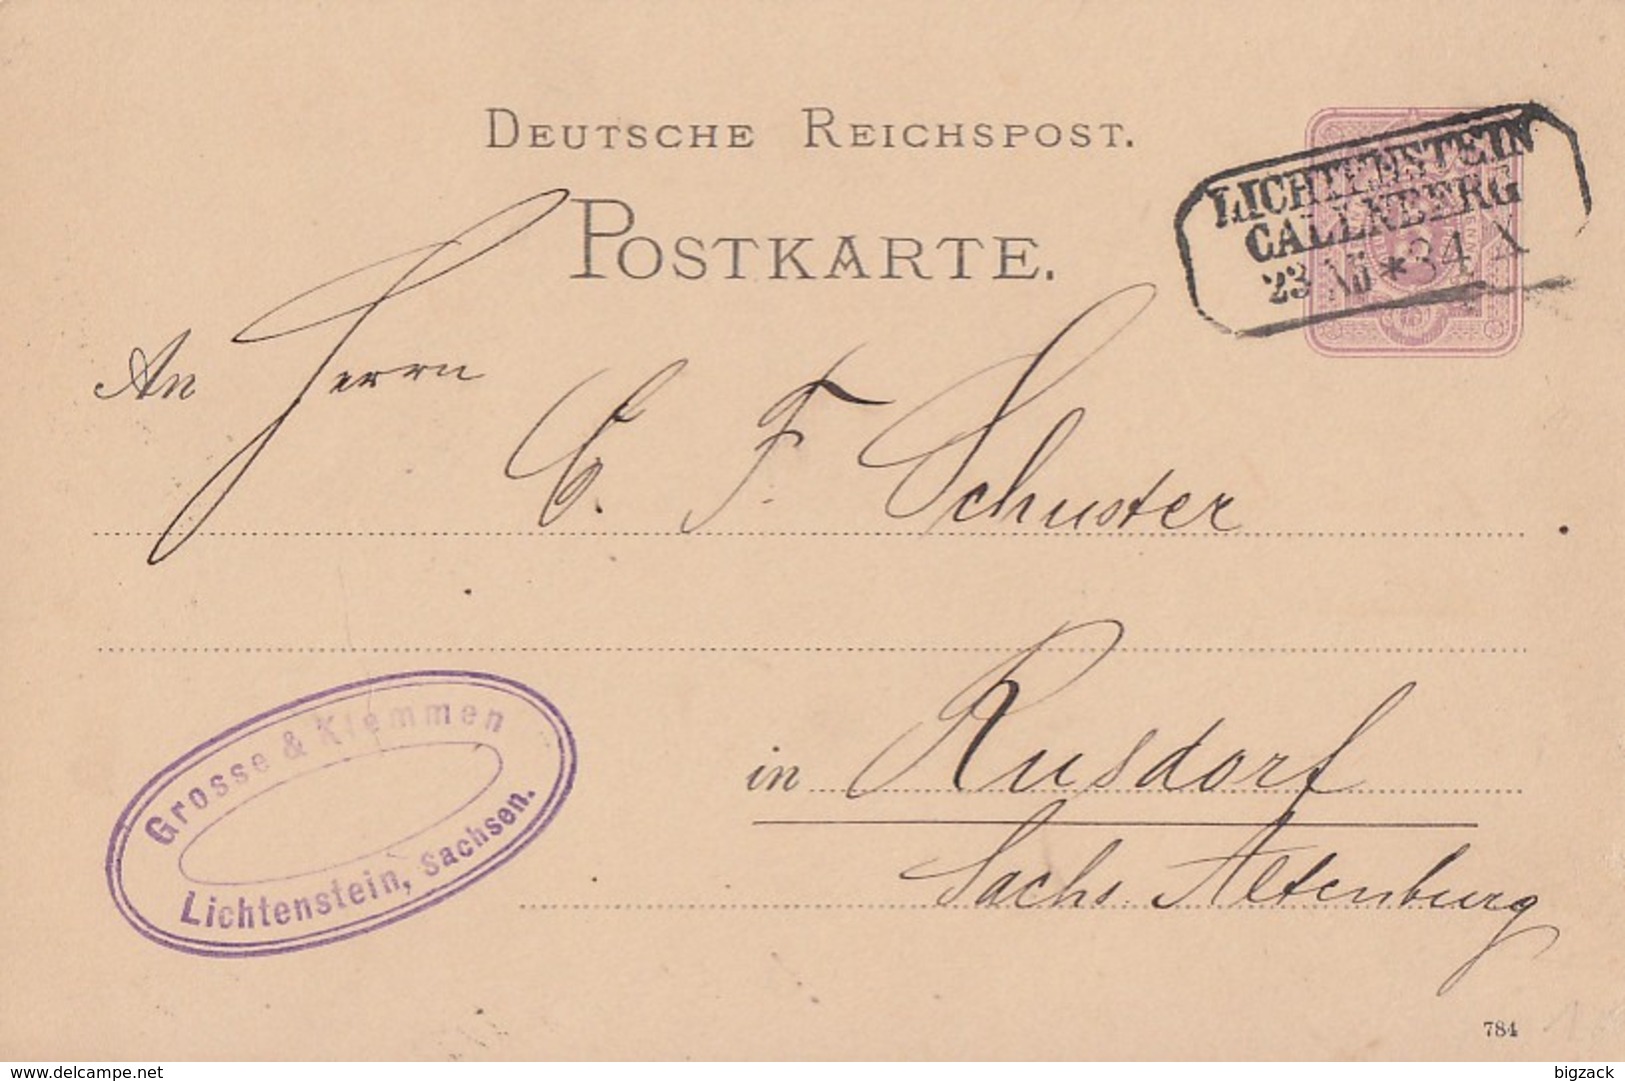 DEUTSCHE REICHSPOST.
POSTKARTE.
LICHTENSTEIN
CALLNBERG
23 * 84 X
An Herrn
C. F. Schuster
in Rusdorf
Sachs. Altenburg
Grosse & Klemmen
Lichtenstein, Sachsen.
784
delcampe.net
bigzack